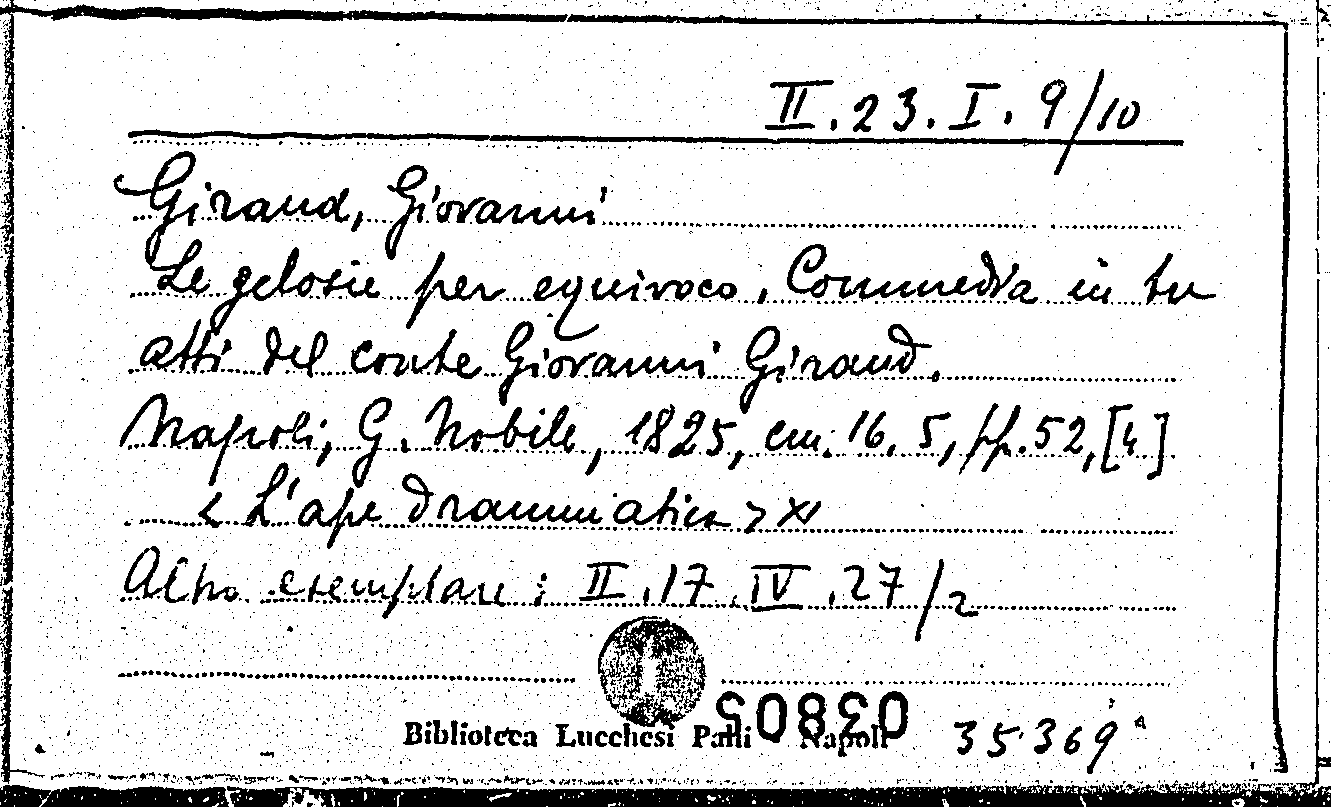 II.23.I.9/10
Giraud, Giovanni
Le gelosie per equivoco, Commedia in tre
atti del conte Giovanni Giraud.
Napoli, G. Nobile, 1825, cm. 16.5, pp. 52, [4]
< L'ape drammatica > XI
Altro esemplare: II.17.IV.27/2
03805
Biblioteca Lucchesi Palli - Napoli
35369